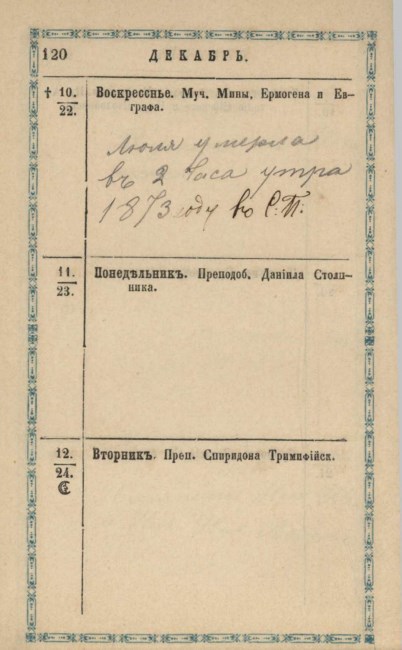 120
ДЕКАБРЬ.
† 10. / 22.
Воскресснье. Муч. Мины, Ермогена и Ев-
графа.
Люля умерла
въ 2 часа утра
1873 году во С. П.
11. / 23.
Понедѣльникъ. Преподоб. Даніила Столп-
ника.
12. / 24.
Вторникъ. Преп. Спиридона Тримифійск.